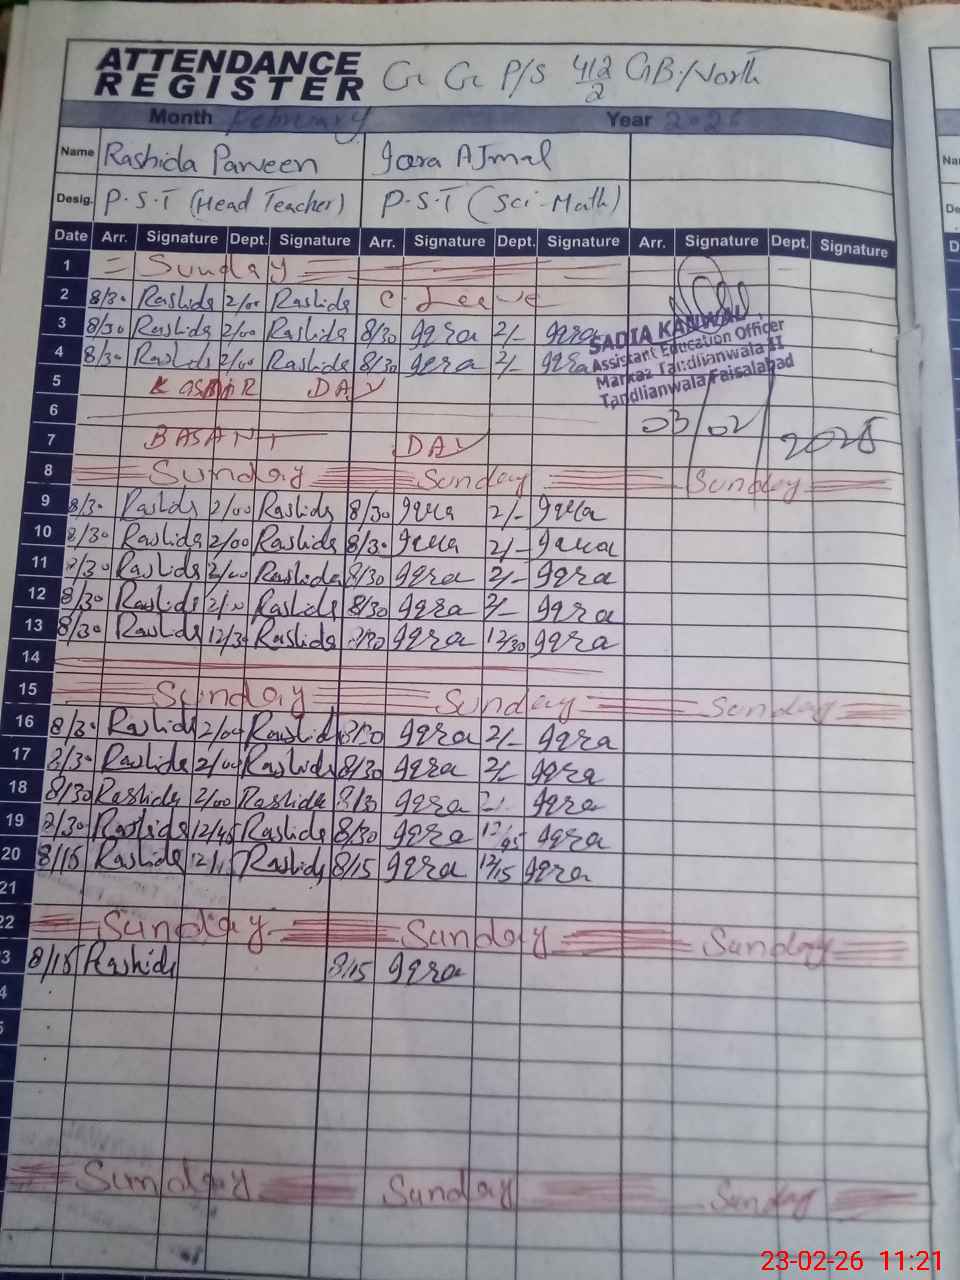 ATTENDANCE
REGISTER
G G P/S 412/2 GB/North
Month February Year 2026
Name Rashida Parveen Iqra Ajmal
Desig. P.S.T (Head Teacher) P.S.T (Sci-Math)
Date Arr. Signature Dept. Signature Arr. Signature Dept. Signature Arr. Signature Dept. Signature
1 Sunday
2 8/30 Rashida 2/00 Rashida C. Leave
3 8/30 Rashida 2/00 Rashida 8/30 Iqra 2/- Iqra
4 8/30 Rashida 2/00 Rashida 8/30 Iqra 2/- Iqra
SADIA KANWAL
Assistant Education Officer
Markaz Tandlianwala II
Tandlianwala Faisalabad
5 DAY
6
03/02/
7 BASANT DAY
8 Sunday Sunday Sunday
9 8/30 Rashida 2/00 Rashida 8/30 Iqra 2/- Iqra
10 8/30 Rashida 2/00 Rashida 8/30 Iqra 2/- Iqra
11 8/30 Rashida 2/00 Rashida 8/30 Iqra 2/- Iqra
12 8/30 Rashida 2/00 Rashida 8/30 Iqra 2/- Iqra
13 8/30 Rashida 12/30 Rashida 8/30 Iqra 12/30 Iqra
14
15 Sunday Sunday Sunday
16 8/30 Rashida 2/00 Rashida 8/30 Iqra 2/- Iqra
17 8/30 Rashida 2/00 Rashida 8/30 Iqra 2/- Iqra
18 8/30 Rashida 2/00 Rashida 8/30 Iqra Iqra
19 8/30 Rashida 12/45 Rashida 8/30 Iqra 12/45 Iqra
20 8/15 Rashida 12/15 Rashida 8/15 Iqra 12/15 Iqra
21
22 Sunday Sunday Sunday
3 8/15 Rashida 8/15 Iqra
4
5
Sunday Sunday Sunday
23-02-26 11:21